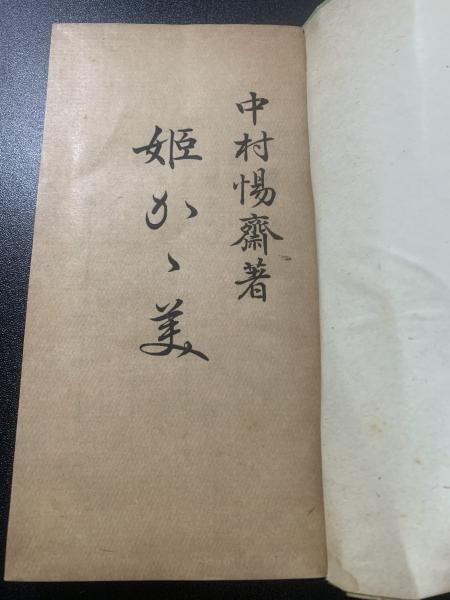 中村惕齋著
姫かゝ美